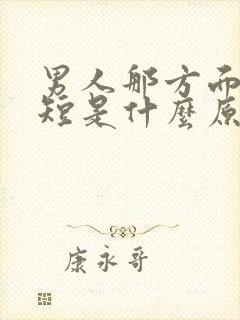 男人那方面
短是什麼原
康永哥